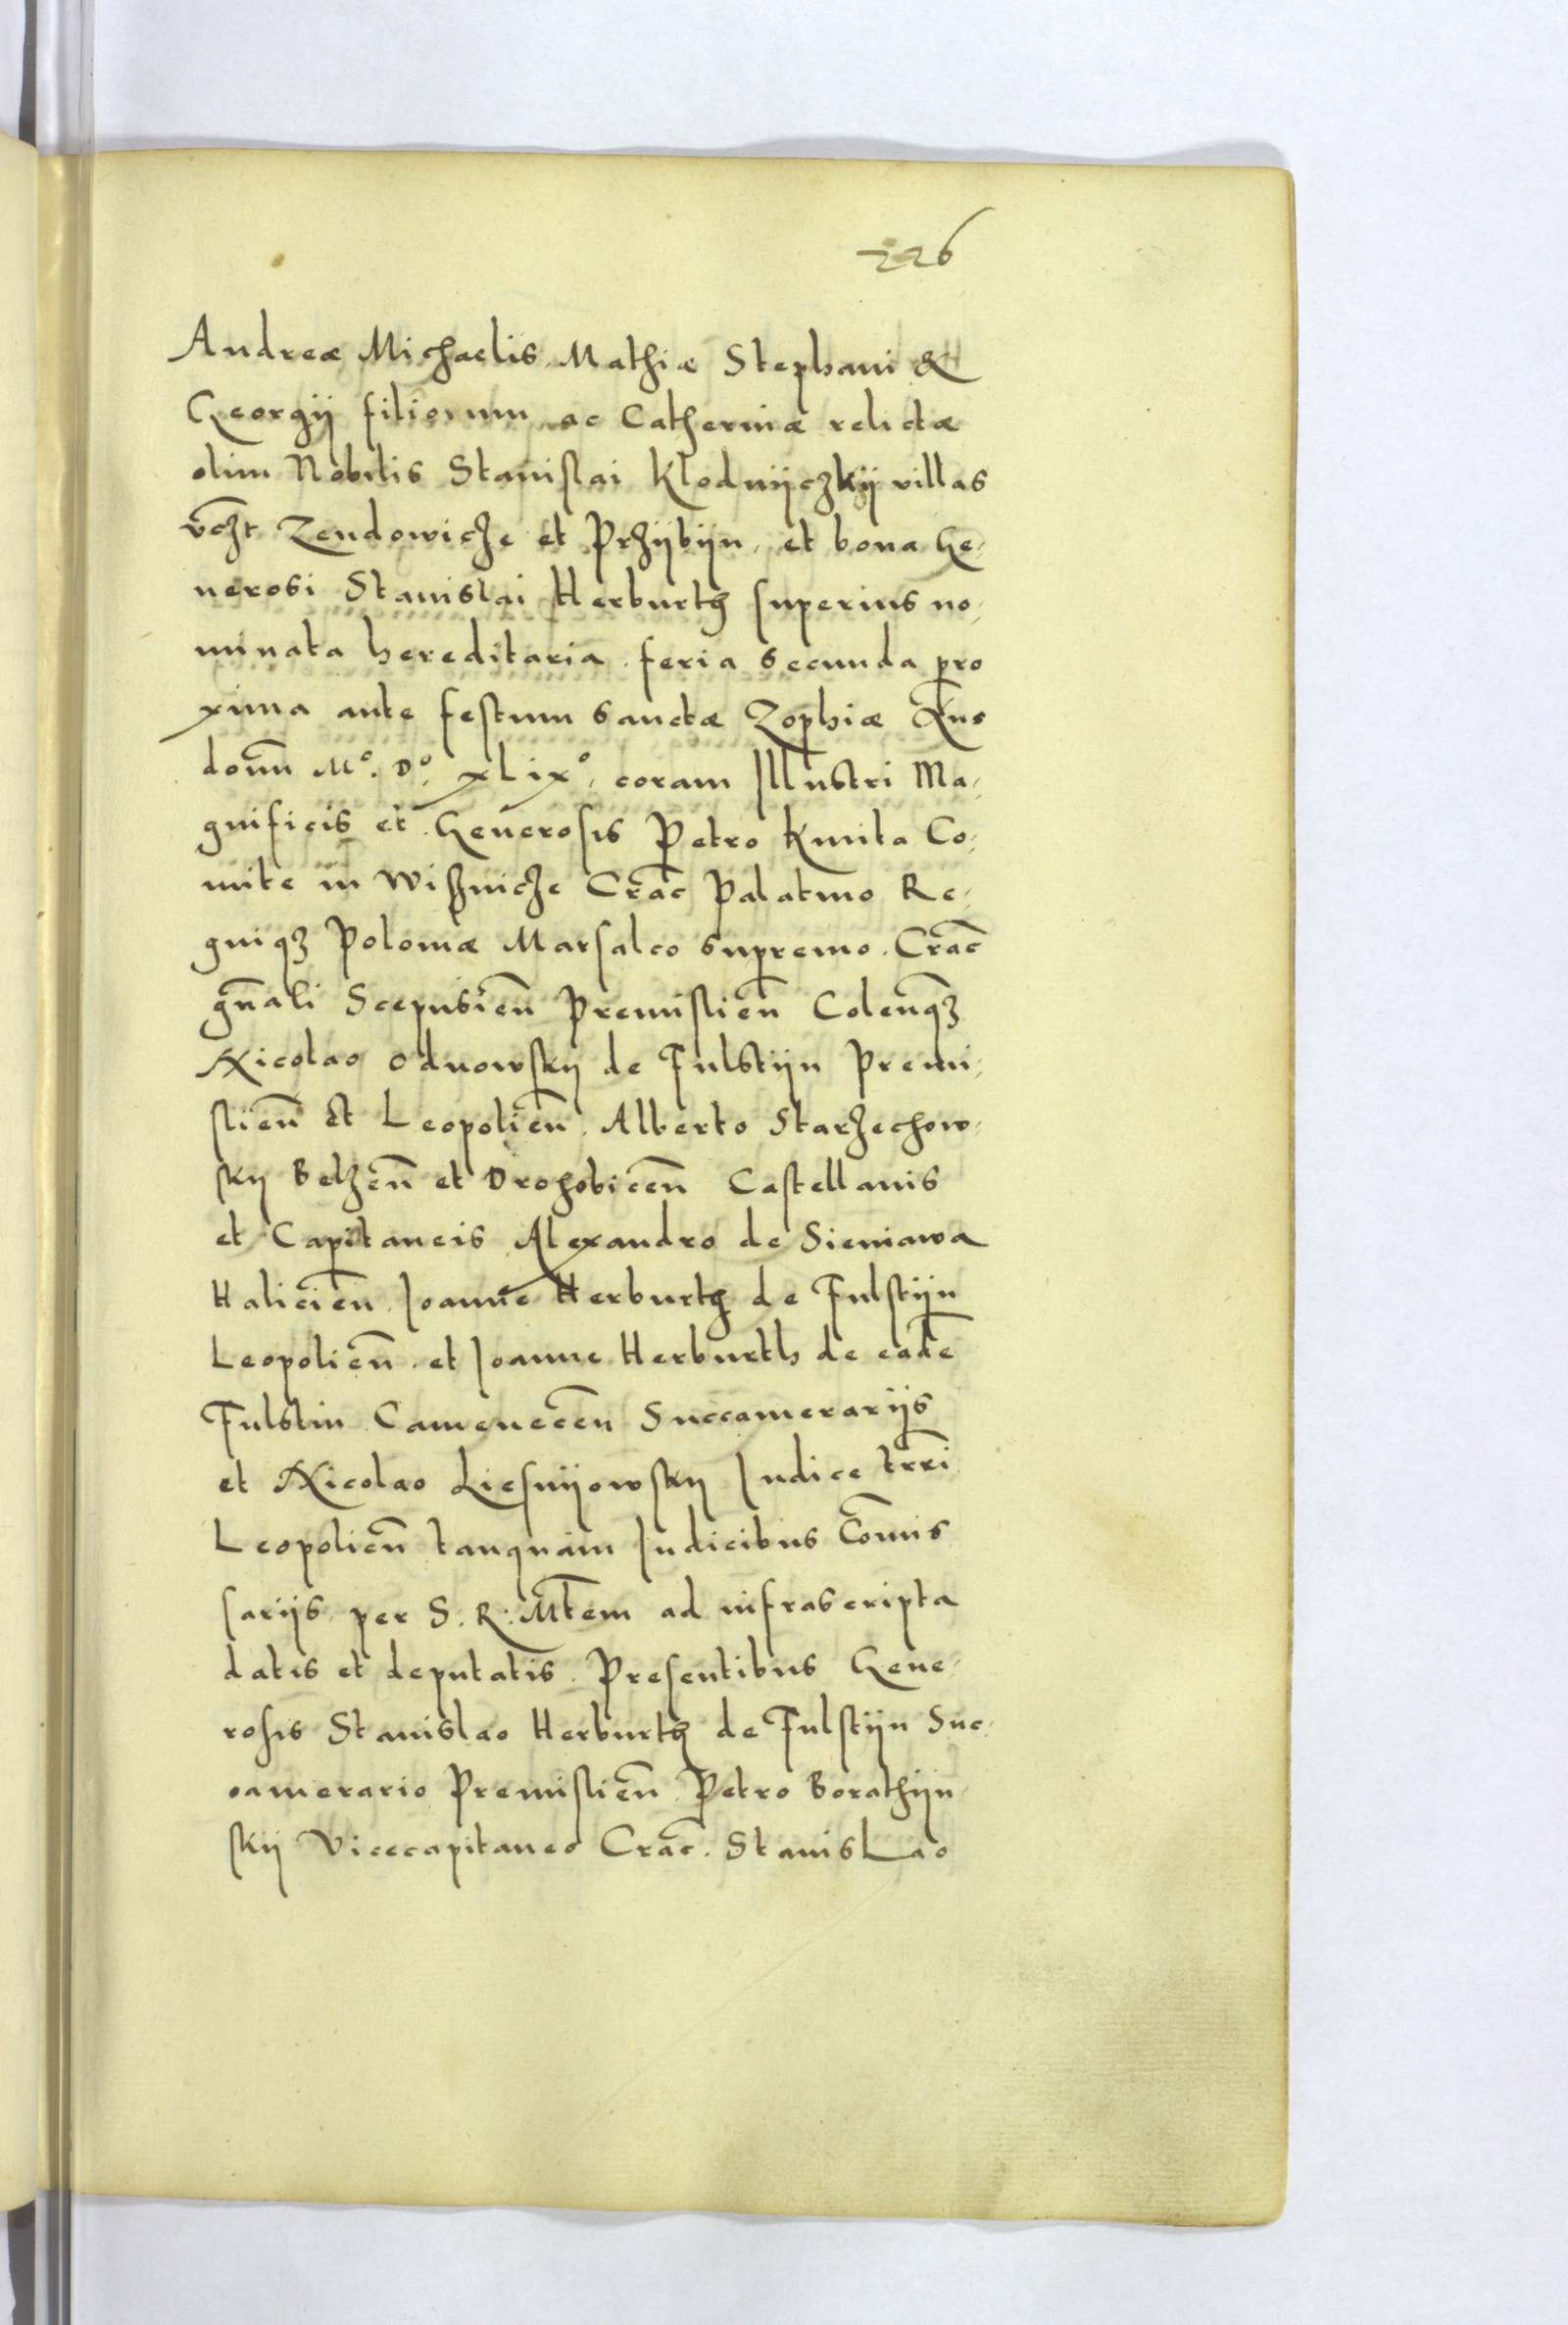 226
Andreæ Michaelis Mathiæ Stephani &
Georgij filiorum ac Catherinæ relictæ
olim Nobilis Stanislai Klodnijczkij villas
vczt Zendowicze et Przijbijn, et bona Ge,
nerosi Stanislai Herburth superius no,
minata hereditaria. feria secunda pro
xima ante festum Sanctæ Zophiæ
domn̄ Mº. Dº. xLixº, coram Illustri Ma,
gnificis et Generosis Petro Kmita Co,
mite in Wisznicze Crac̄ Palatino Re,
gniqȝ Poloniæ Marsalco supremo. Crac̄
gn̄ali Scepusien̄ Premislien̄ Colen̄qȝ
Nicolao Odnowskij de Fulstijn Premi,
slien̄ Et Leopolien̄. Alberto Starzechow,
skij Belzen̄ et Drohobicen̄ Castellanis
et Capitaneis Alexandro de Sieniawa
Halicien̄. Joanne Herburth de Fulstijn
Leopolien̄. et Joanne Herburth de eadē
Fulstin Camenecen̄ Succamerarijs
et Nicolao Liesnijowskij Judice trr̄i
Leopolien̄ tanquam Judicibus Com̄is
sarijs per S: R: Mt̄em ad infrascripta
datis et deputatis. Presentibus Gene,
rosis Stanislao Herburth de Fulstijn Suc,
camerario Premislien̄ Petro Borathijn,
skij Vicecapitaneo Crac̄. StanisLao